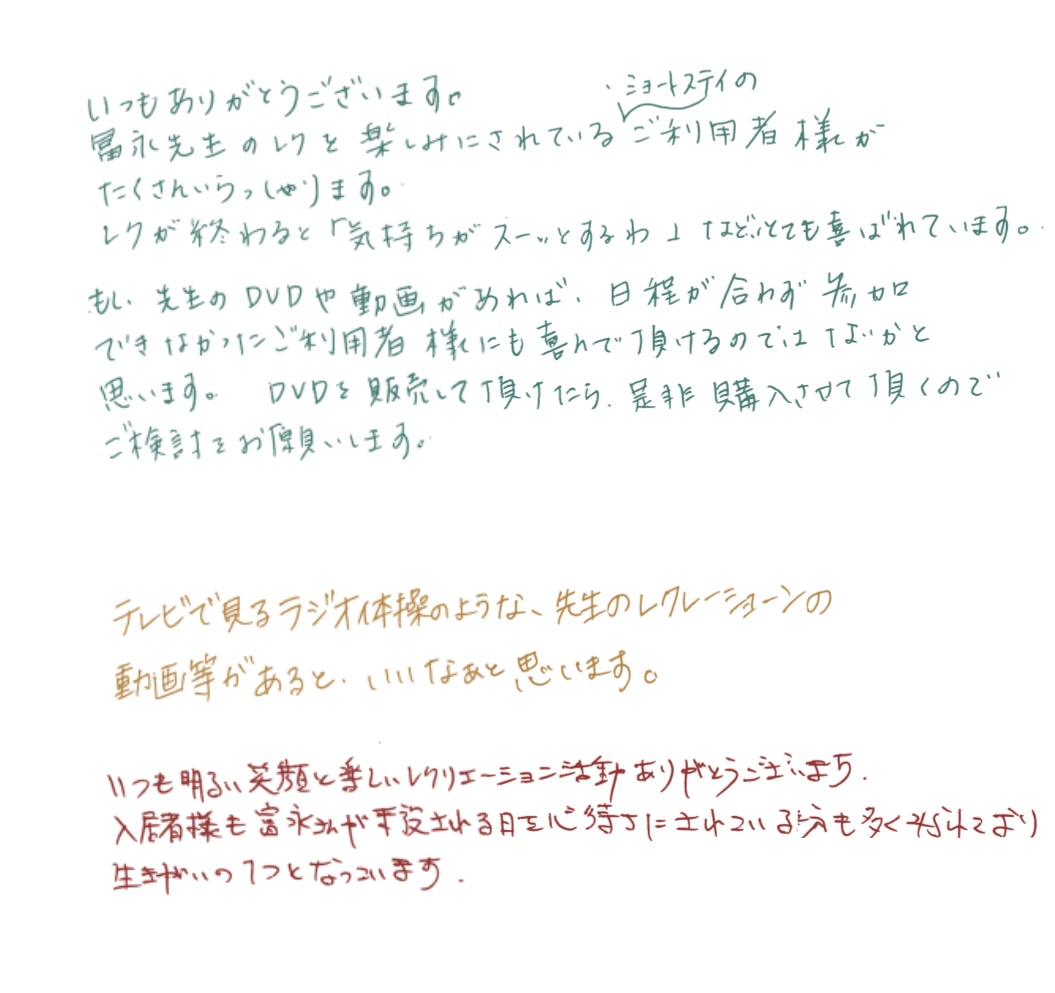 いつもありがとうございます。
冨永先生のレクを楽しみにされているショートステイのご利用者様が
たくさんいらっしゃります。
レクが終わると「気持ちがスーッとするわ」などとても喜ばれています。
もし、先生のDVDや動画があれば、日程が合わず参加
できなかったご利用者様にも喜んで頂けるのではないかと
思います。 DVDを販売して頂けたら、是非購入させて頂くので
ご検討をお願いします。
テレビで見るラジオ体操のような、先生のレクレーションの
動画等があると、いいなぁと思います。
いつも明るい笑顔と楽しいレクリエーション活動ありがとうございます.
入居者様も富永さんが来設される日を心待ちにされている方も多くみられており
生きがいの1つとなっています.